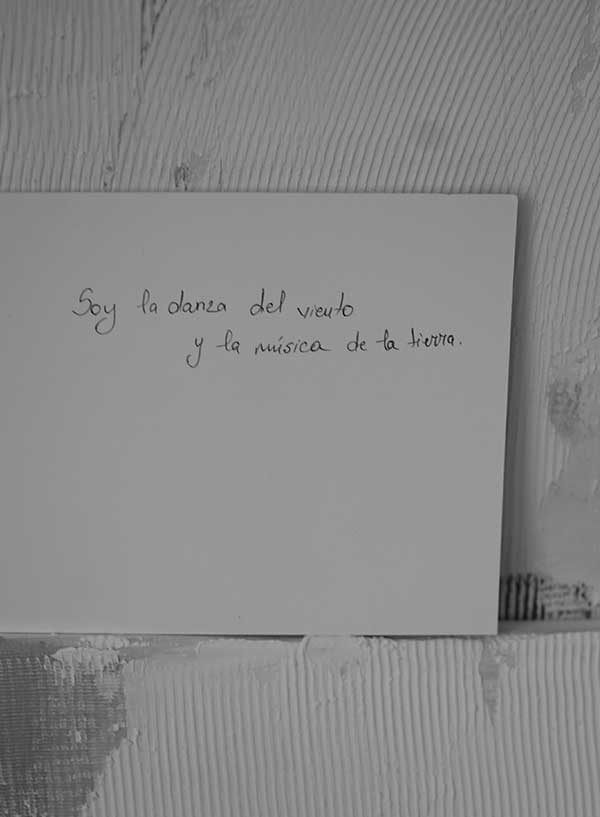 Soy la danza del viento
y la música de la tierra.